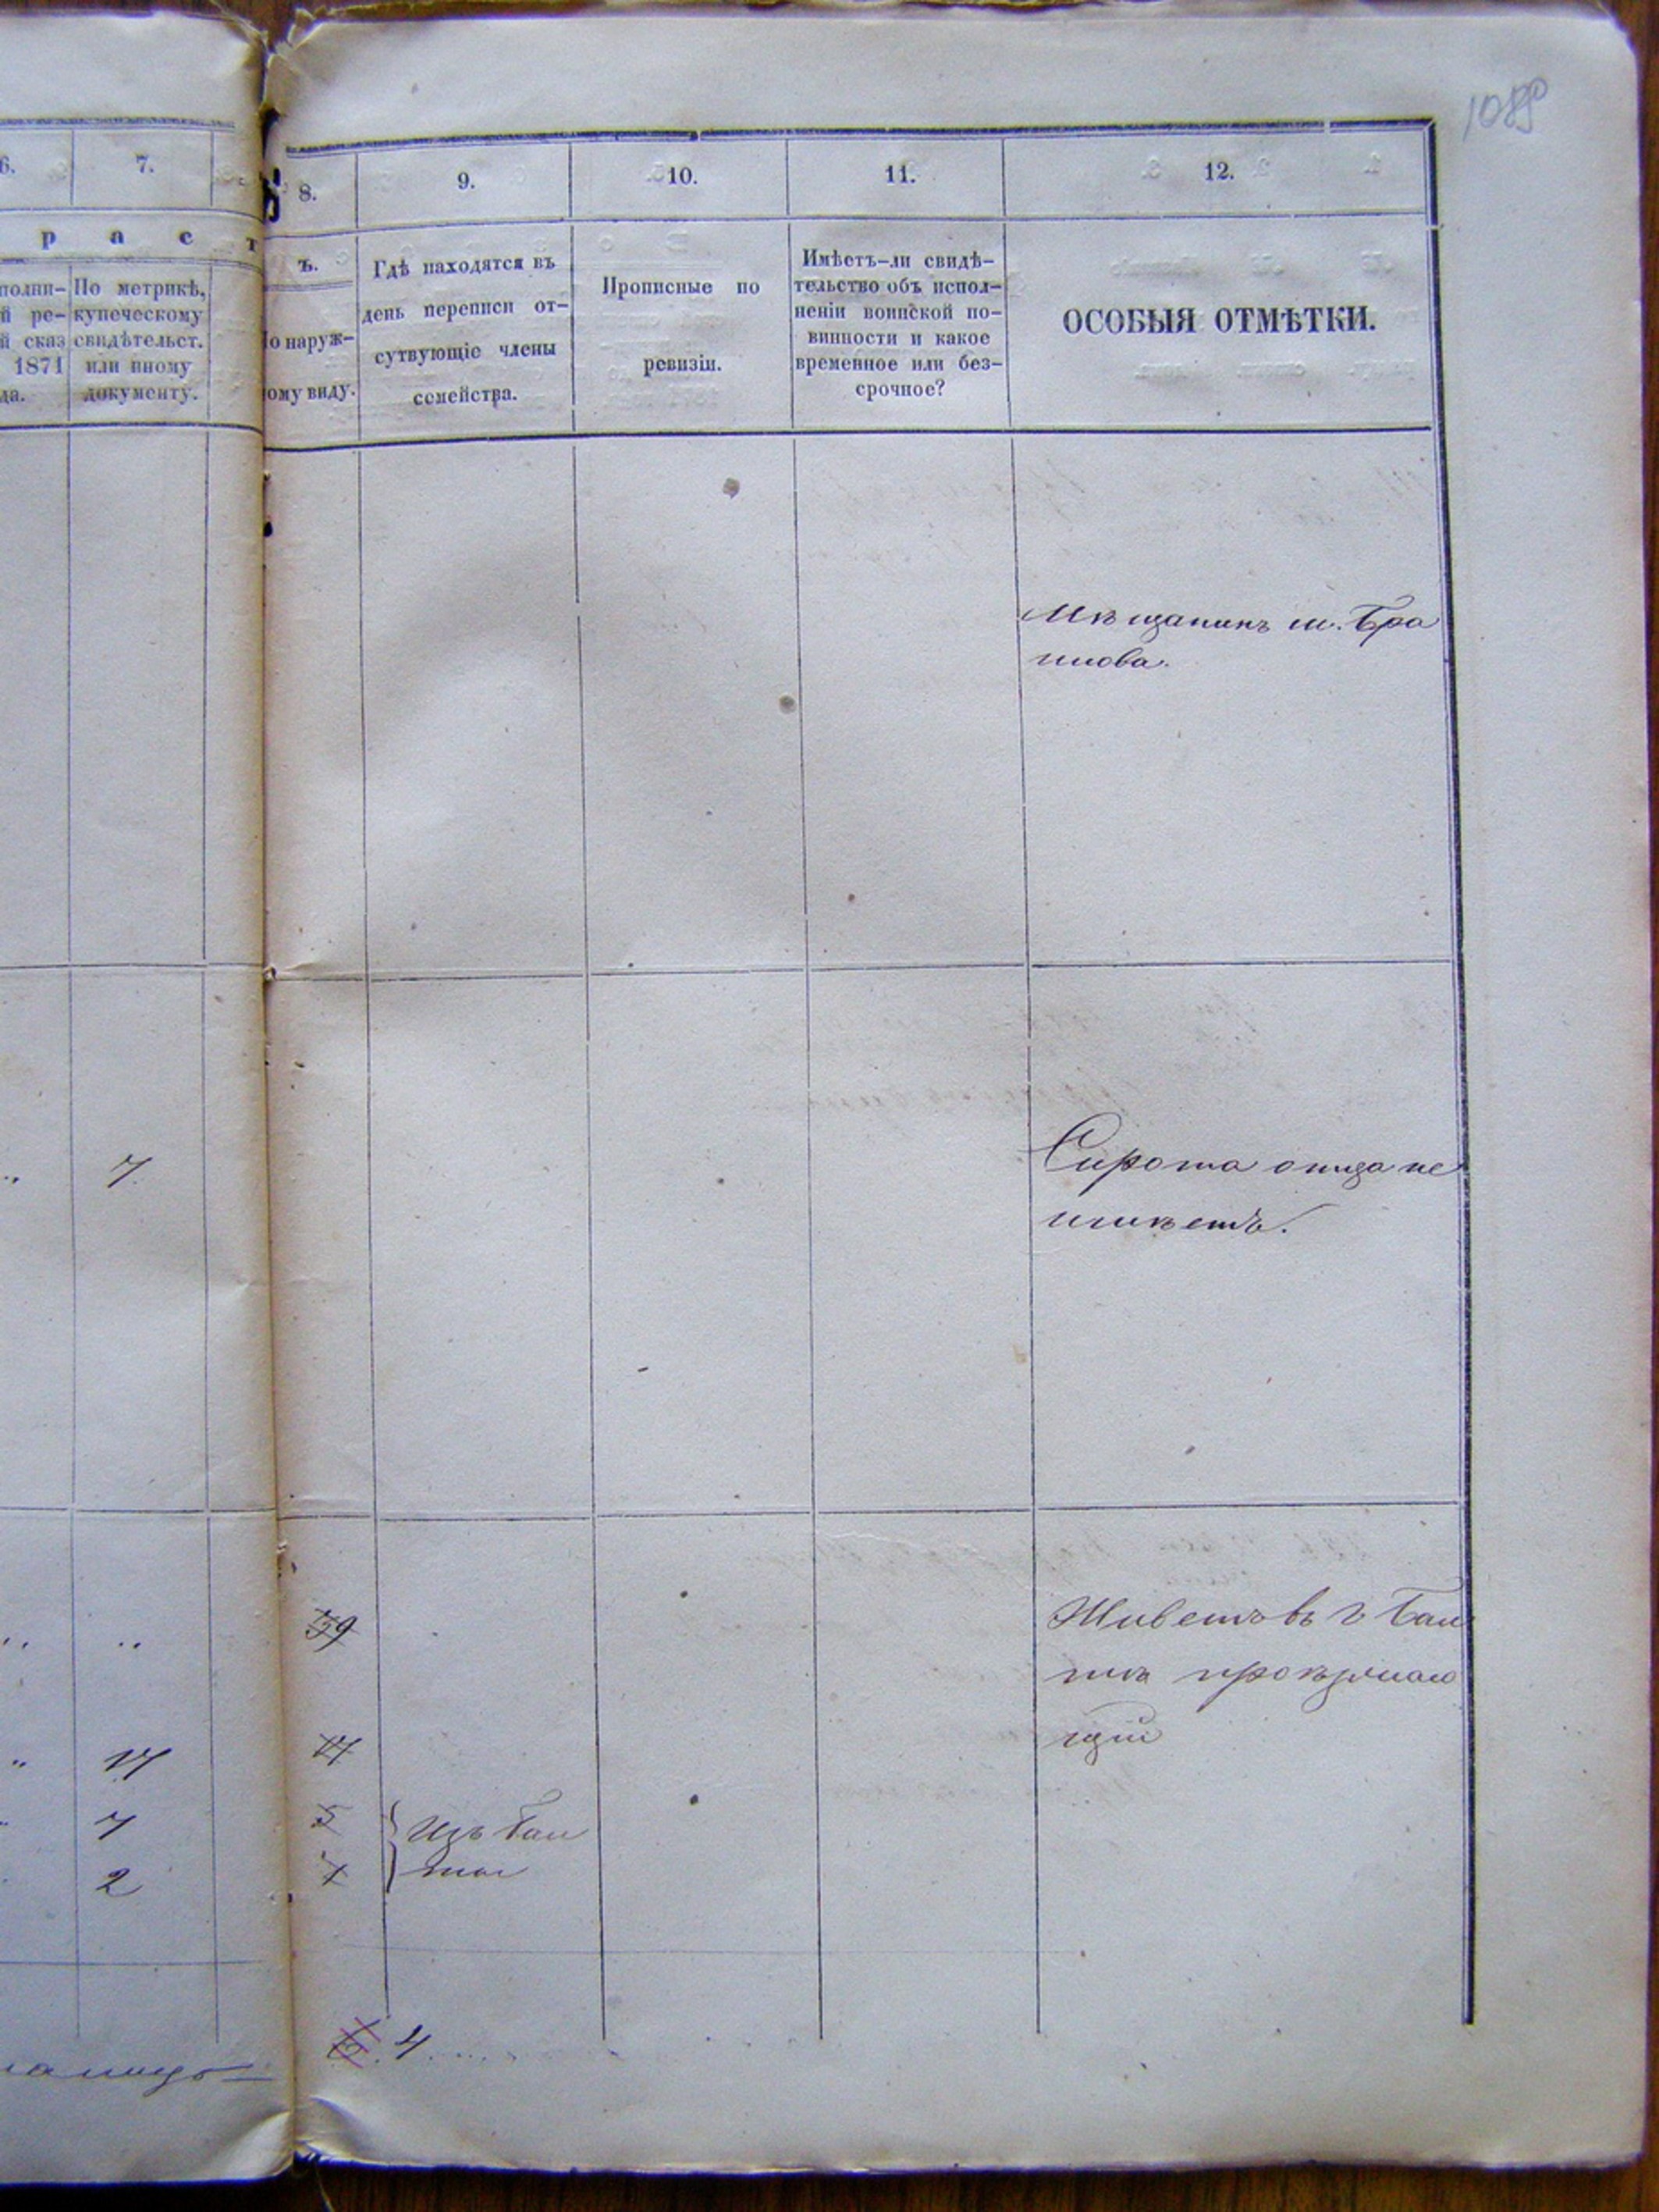 108
6. 7. 8. 9. 10. 11. 12.
р а с т ъ.
полни-
й ре-
й сказ
1871
да.
По метрикѣ,
купеческому
свидѣтельст.
или иному
документу.
По наруж-
ному виду.
Гдѣ находятся въ
день переписи от-
сутвующіе члены
семейства.
Прописные по
ревизіи.
Имѣетъ-ли свидѣ-
тельство объ испол-
неніи воинской по-
винности и какое
временное или без-
срочное?
ОСОБЫЯ ОТМѢТКИ.
Мѣщанинъ м. Бра
илова.
7
Сирота отца не
имѣетъ.
59
Живетъ въ г Бал
тѣ
щій
17
17
7
5
Изъ Бал
ты
2
4